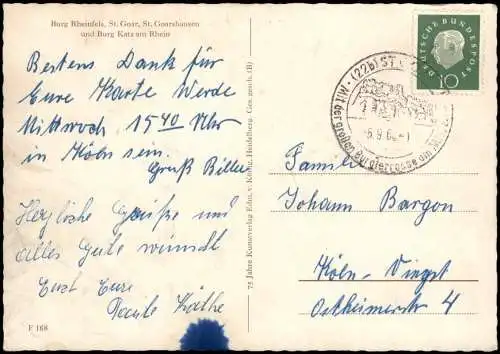 Burg Rheinfels, St. Goar, St. Goarshausen
und Burg Katz am Rhein
Bestens Dank für
Eure Karte Werde
Mittwoch 15 40 Uhr
in Köln sein.
Gruß Billa
Herzliche Grüße und
alles Gute wünscht
Euch Eure
Tante Käthe
F 168
75 Jahre Kunstverlag Edm. v. König, Heidelberg. Ges. gesch. (B)
(22b) ST.
Mit der großen Burgterrasse am
6.9.60
DEUTSCHE BUNDESPOST
10
Familie
Johann Bargon
Köln-Vingst
Ostheimerstr 4